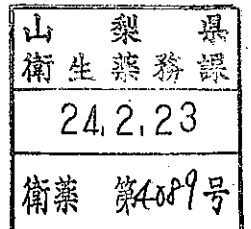 山梨県
衛生薬務課
24.2.23
衛薬 第4089号